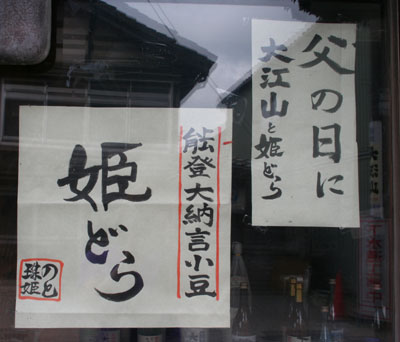 父の日に
大江山と姫どら
能登大納言小豆
姫どら
のと
珠姫